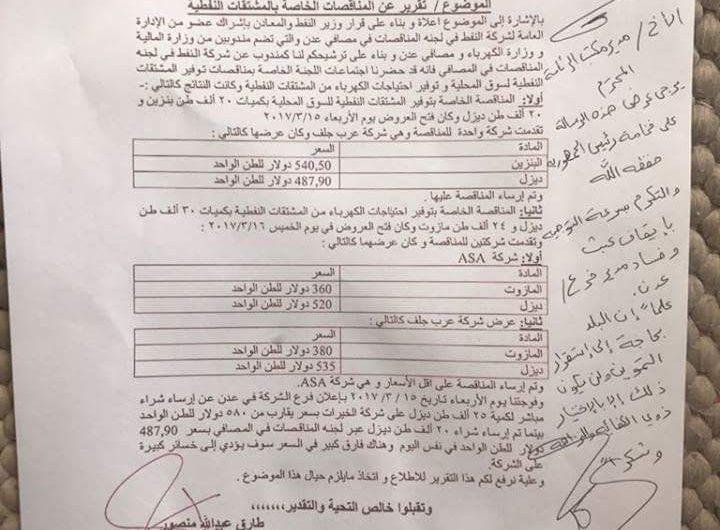 الموضوع/ تقرير عن المناقصات الخاصة بالمشتقات النفطية
بالإشارة إلى الموضوع اعلاة و بناء على قرار وزير النفط والمعادن بإشراك عضو من الإدارة
العامة لشركة النفط في لجنه المناقصات في مصافي عدن والتي تضم مندوبين من وزارة المالية
و وزارة الكهرباء و مصافي عدن و بناء على ترشيحكم لنا كمندوب عن شركة النفط في لجنه
المناقصات في المصافي فانه قد حضرنا اجتماعات اللجنة الخاصة بمناقصات توفير المشتقات
النفطية لسوق المحلية و توفير احتياجات الكهرباء من المشتقات النفطية وكانت النتائج كالتالي :-
أولا: المناقصة الخاصة بتوفير المشتقات النفطية للسوق المحلية بكميات ٢٠ ألف طن بنزين و
٢٠ ألف طن ديزل وكان فتح العروض يوم الأربعاء ٢٠١٧/٣/١٥
تقدمت شركة واحدة للمناقصة وهي شركة عرب جلف وكان عرضها كالتالي:
المادة السعر
البنزين 540,50 دولار للطن الواحد
ديزل 487,90 دولار للطن الواحد
وتم إرساء المناقصة عليها .
ثانيا: المناقصة الخاصة بتوفير احتياجات الكهرباء من المشتقات النفطية بكميات ٣٠ ألف طن
ديزل و ٢٤ ألف طن مازوت وكان فتح العروض في يوم الخميس ٢٠١٧/٣/١٦
وتقدمت شركتين للمناقصة و كان عرضهما كالتالي:
أولا: شركة ASA
المادة السعر
المازوت 360 دولار للطن الواحد
ديزل 520 دولار للطن الواحد
ثانيا: عرض شركة عرب جلف كالتالي :
المادة السعر
المازوت 380 دولار للطن الواحد
ديزل 535 دولار للطن الواحد
وتم إرساء المناقصة على اقل الأسعار و هي شركة ASA.
وفوجئنا يوم الأربعاء تاريخ ١٥ /٣ /٢٠١٧ بإعلان فرع الشركة في عدن عن إرساء شراء
مباشر لكمية ٢٥ ألف طن ديزل على شركة الخيرات بسعر يقارب من ٥٨٠ دولار للطن الواحد
بينما تم إرساء شراء ٢٠ ألف طن ديزل عبر لجنه المناقصات في المصافي بسعر 487,90
دولار للطن الواحد في نفس اليوم وهناك فارق كبير في السعر سوف يؤدي إلى خسائر كبيرة
على الشركة.
وعلية نرفع لكم هذا التقرير للاطلاع و اتخاذ مايلزم حيال هذا الموضوع .
وتقبلوا خالص التحية والتقدير،،،،،،،
طارق عبدالله منصور
الأخ / مدير مكتب الرئاسة
المحترم
يرجى عرض هذه الرسالة
على فخامة رئيس الجمهورية
حفظه الله
والتكرم سرعة التوجيه
بإيقاف عبث
وفساد مدير فرع/
عدن.
علماً أن البلد
بحاجة إلى إستقرار
التموين ولن يكون
ذلك إلا بإختيار
ذوي الكفائة والنزاهة
وشكراً